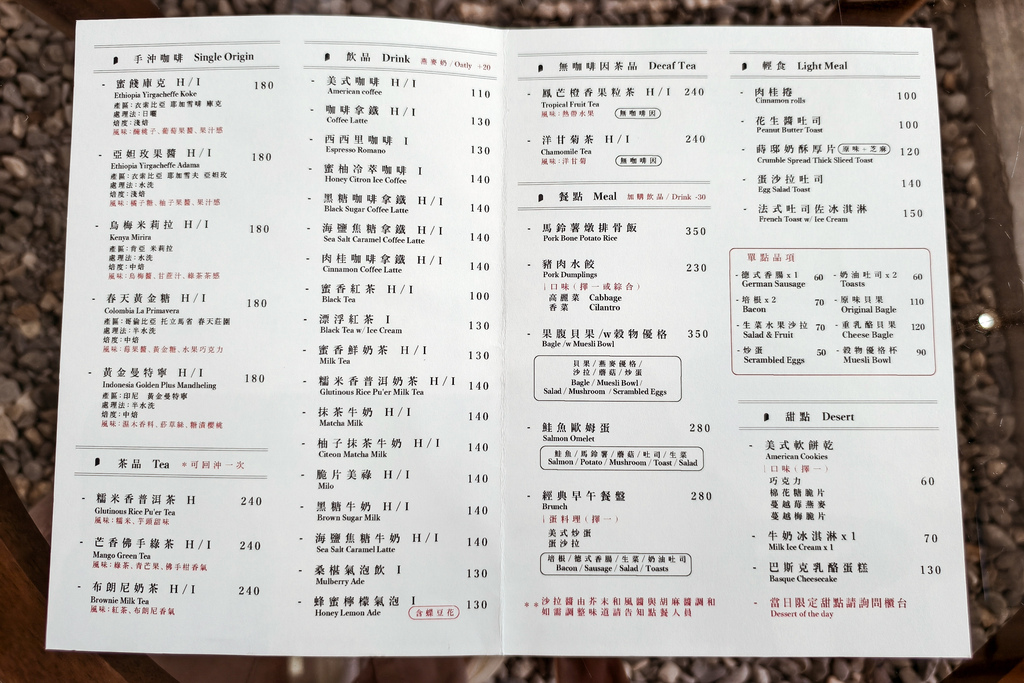 手沖咖啡 Single Origin
- 蜜餞庫克 H/I 180
Ethiopia Yirgacheffe Koke
產區:衣索比亞 耶加雪啡 庫克
處理法:日曬
焙度:淺焙
風味:醃桃子、葡萄果醬、果汁感
- 亞妲玫果醬 H/I 180
Ethiopia Yirgacheffe Adama
產區:衣索比亞 耶加雪夫 亞妲玫
處理法:水洗
焙度:淺焙
風味:橘子糖、柚子果醬、果汁感
- 烏梅米莉拉 H/I 180
Kenya Mirira
產區:肯亞 米莉拉
處理法:水洗
焙度:中焙
風味:烏梅醬、甘蔗汁、綠茶茶感
- 春天黃金糖 H/I 180
Colombia La Primavera
產區:哥倫比亞 托立馬省 春天莊園
處理法:半水洗
焙度:中焙
風味:莓果醬、黃金糖、水果巧克力
- 黃金曼特寧 H/I 180
Indonesia Golden Plus Mandheling
產區:印尼 黃金曼特寧
處理法:半水洗
焙度:中焙
風味:濕木香料、菸草絲、糖漬櫻桃
茶品 Tea *可回沖一次
- 糯米香普洱茶 H 240
Glutinous Rice Pu'er Tea
風味:糯米、芋頭甜味
- 芒香佛手綠茶 H/I 240
Mango Green Tea
風味:綠茶、青芒果、佛手柑香氣
- 布朗尼奶茶 H/I 240
Brownie Milk Tea
風味:紅茶、布朗尼香氣
飲品 Drink 燕麥奶/Oatly +20
- 美式咖啡 H/I 110
American coffee
- 咖啡拿鐵 H/I 130
Coffee Latte
- 西西里咖啡 I 130
Espresso Romano
- 蜜柚冷萃咖啡 I 140
Honey Citron Ice Coffee
- 黑糖咖啡拿鐵 H/I 140
Black Sugar Coffee Latte
- 海鹽焦糖拿鐵 H/I 140
Sea Salt Caramel Coffee Latte
- 肉桂咖啡拿鐵 H/I 140
Cinnamon Coffee Latte
- 蜜香紅茶 H/I 100
Black Tea
- 漂浮紅茶 I 130
Black Tea w/ Ice Cream
- 蜜香鮮奶茶 H/I 130
Milk Tea
- 糯米香普洱奶茶 H/I 140
Glutinous Rice Pu'er Milk Tea
- 抹茶牛奶 H/I 140
Matcha Milk
- 柚子抹茶牛奶 H/I 140
Citeon Matcha Milk
- 脆片美祿 H/I 140
Milo
- 黑糖牛奶 H/I 140
Brown Sugar Milk
- 海鹽焦糖牛奶 H/I 140
Sea Salt Caramel Latte
- 桑椹氣泡飲 I 130
Mulberry Ade
- 蜂蜜檸檬氣泡 I 130
Honey Lemon Ade 含蝶豆花
無咖啡因茶品 Decaf Tea
- 鳳芒橙香果粒茶 H/I 240
Tropical Fruit Tea
風味:熱帶水果 無咖啡因
- 洋甘菊茶 H/I 240
Chamomile Tea
風味:洋甘菊 無咖啡因
餐點 Meal 加購飲品/Drink -30
- 馬鈴薯燉排骨飯 350
Pork Bone Potato Rice
- 豬肉水餃 230
Pork Dumplings
|口味(擇一或綜合)
高麗菜 Cabbage
香菜 Cilantro
- 果腹貝果/w穀物優格 350
Bagle /w Muesli Bowl
貝果/燕麥優格/
沙拉/蘑菇/炒蛋
Bagle / Muesli Bowl /
Salad / Mushroom / Scrambled Eggs
- 鮭魚歐姆蛋 280
Salmon Omelet
鮭魚/馬鈴薯/蘑菇/吐司/生菜
Salmon / Potato / Mushroom / Toast / Salad
- 經典早午餐盤 280
Brunch
|蛋料理(擇一)
美式炒蛋
蛋沙拉
培根/德式香腸/生菜/奶油吐司
Bacon / Sausage / Salad / Toasts
**沙拉醬由芥末和風醬與胡麻醬調和
如需調整味道請告知點餐人員
輕食 Light Meal
- 肉桂捲 100
Cinnamon rolls
- 花生醬吐司 100
Peanut Butter Toast
- 蒔邸奶酥厚片 原味、芝麻 120
Crumble Spread Thick Sliced Toast
- 蛋沙拉吐司 140
Egg Salad Toast
- 法式吐司佐冰淇淋 150
French Toast w/ Ice Cream
單點品項
-德式香腸x1 60
German Sausage
-培根x2 70
Bacon
-生菜水果沙拉 70
Salad & Fruit
-炒蛋 50
Scrambled Eggs
-奶油吐司x2 60
Toasts
-原味貝果 110
Original Bagle
-重乳酪貝果 120
Cheese Bagle
-穀物優格杯 90
Muesli Bowl
甜點 Desert
- 美式軟餅乾
American Cookies
|口味(擇一)
巧克力 60
棉花糖脆片
蔓越莓燕麥
蔓越梅脆片
- 牛奶冰淇淋x1 70
Milk Ice Cream x 1
- 巴斯克乳酪蛋糕 130
Basque Cheesecake
- 當日限定甜點請詢問櫃台
Dessert of the day